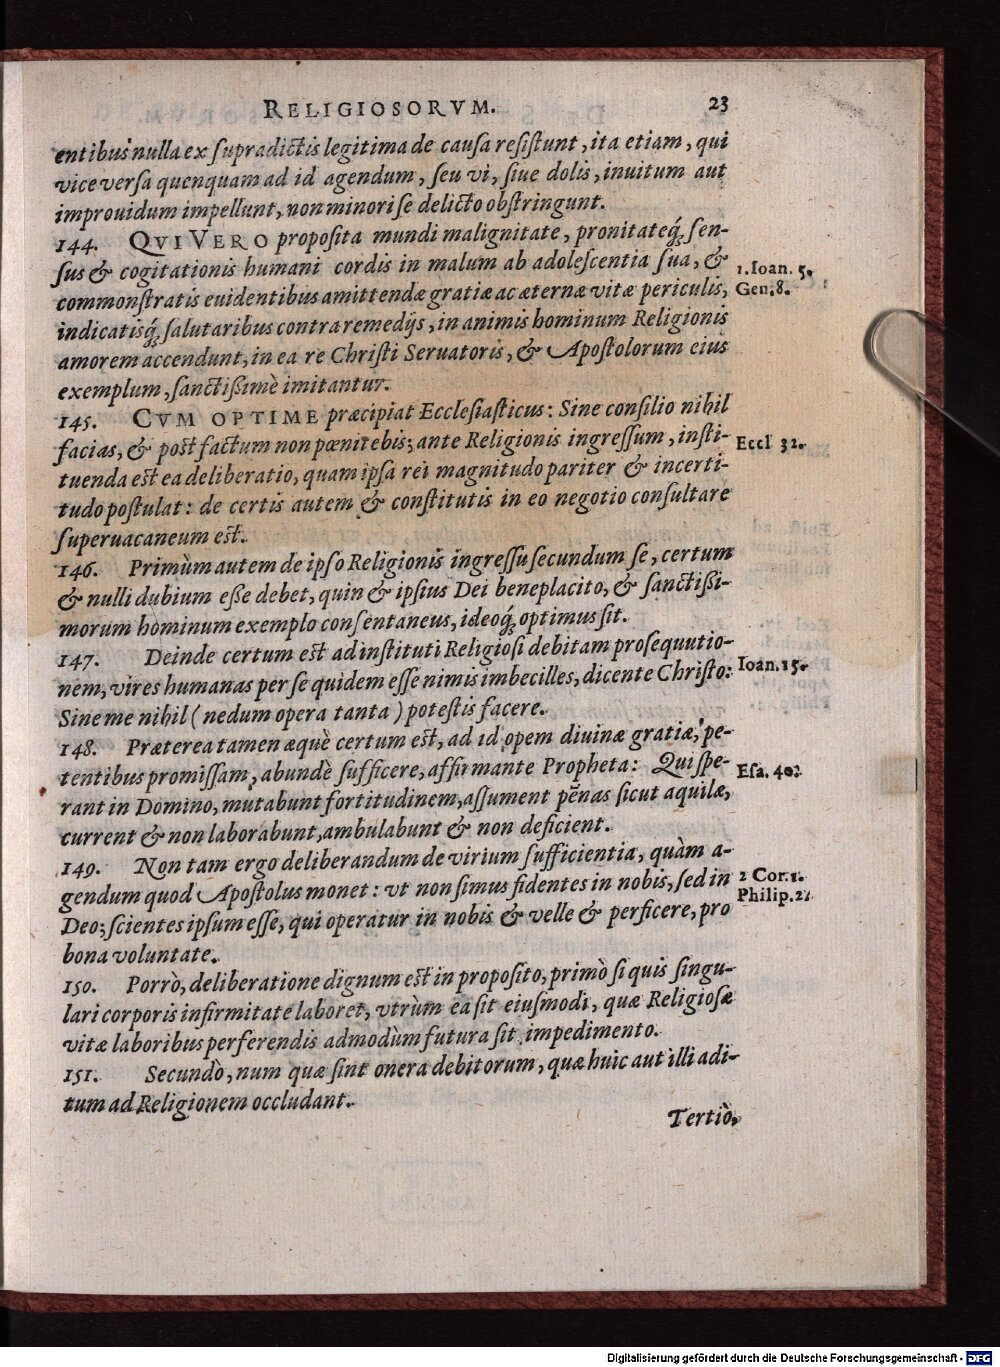 RELIGIOSORVM. 23
entibus nulla ex supradictis legitima de causa resistunt, ita etiam, qui
vice versa quenquam ad id agendum, seu vi, siue dolis, inuitum aut
improuidum impellunt, non minori se delicto obstringunt.
144. QVI VERO proposita mundi malignitate, pronitateq́; sen-
sus & cogitationis humani cordis in malum ab adolescentia sua, &
1. Ioan. 5.
commonstratis euidentibus amittendæ gratiæ ac æternæ vitæ periculis,
Gen. 8.
indicatisq́; salutaribus contra remedijs, in animis hominum Religionis
amorem accendunt, in ea re Christi Seruatoris, & Apostolorum eius
exemplum, sanctißimè imitantur.
145. CVM OPTIME præcipiat Ecclesiasticus: Sine consilio nihil
facias, & post factum non pœnitebis; ante Religionis ingressum, insti-
Eccl 32.
tuenda est ea deliberatio, quam ipsa rei magnitudo pariter & incerti-
tudo postulat: de certis autem & constitutis in eo negotio consultare
superuacaneum est.
146. Primùm autem de ipso Religionis ingressu secundum se, certum
& nulli dubium eße debet, quin & ipsius Dei beneplacito, & sanctißi-
morum hominum exemplo consentaneus, ideoq́; optimus sit.
147. Deinde certum est ad instituti Religiosi debitam prosequutio-
nem, vires humanas per se quidem esse nimis imbecilles, dicente Christo:
Ioan. 15.
Sine me nihil (nedum opera tanta) potestis facere.
148. Præterea tamen æquè certum est, ad id opem diuinæ gratiæ, pe-
tentibus promissam, abundè sufficere, affirmante Propheta: Qui spe-
Esa. 40.
rant in Domino, mutabunt fortitudinem, assument pẽnas sicut aquilæ,
current & non laborabunt, ambulabunt & non deficient.
149. Non tam ergo deliberandum de virium sufficientia, quàm a-
gendum quod Apostolus monet: vt non simus fidentes in nobis, sed in
2 Cor. 1.
Deo; scientes ipsum esse, qui operatur in nobis & velle & perficere, pro
Philip. 2.
bona voluntate.
150. Porrò, deliberatione dignum est in proposito, primò si quis singu-
lari corporis infirmitate laboret, vtrùm ea sit eiusmodi, quæ Religiosæ
vitæ laboribus perferendis admodùm futura sit impedimento.
151. Secundò, num quæ sint onera debitorum, quæ huic aut illi adi-
tum ad Religionem occludant.
Tertiò,
Digitalisierung gefördert durch die Deutsche Forschungsgemeinschaft - DFG